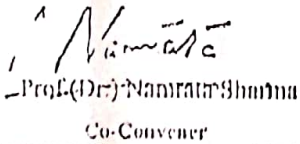 Namrata
Prof.(Dr.) Namrata Sharma
Co-Convener